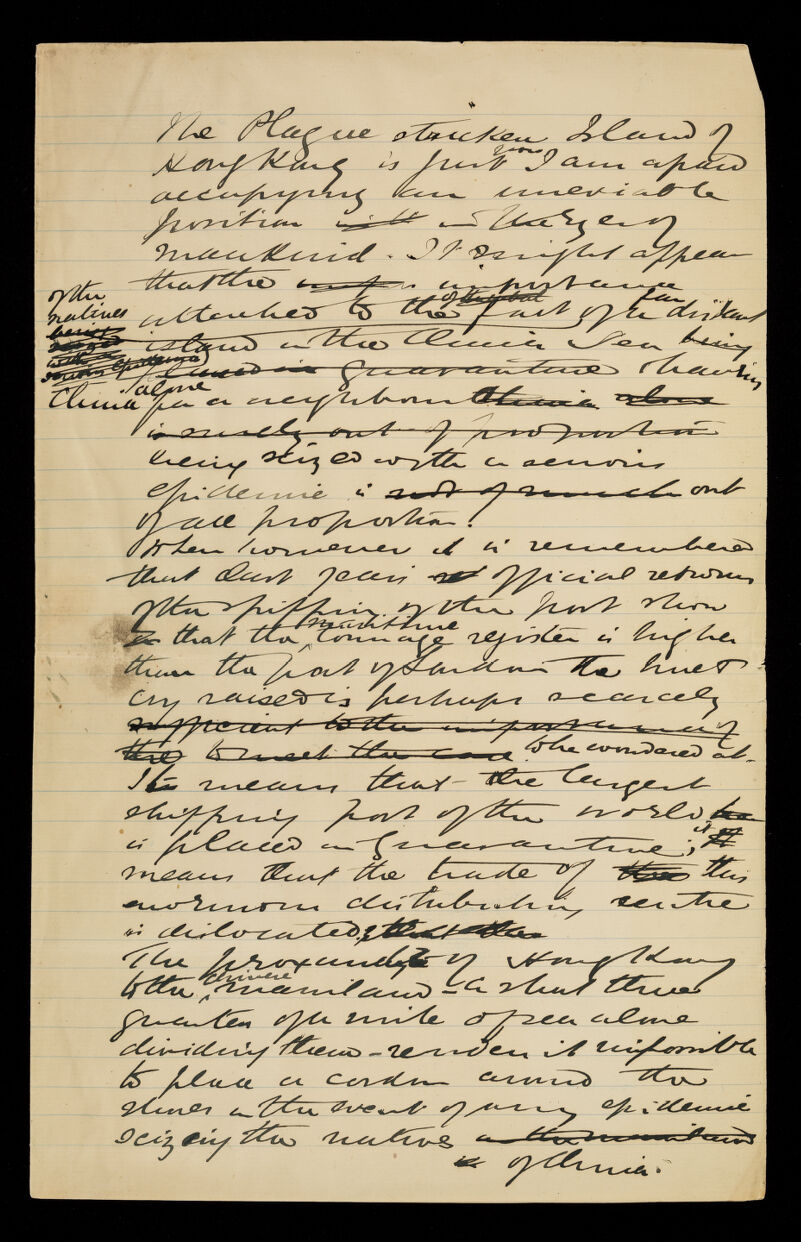 The Plague stricken Island of
Hong Kong is just now I am afraid
occupying an unenviable
position in the eyes of
mankind. It might appear
that the importance
attached to the fact of the
natives of a distant
island in the China Sea being
quarantine having
China alone for a neighbour
is surely out of proportion
being seized with a serious
epidemic is not of much out
of all proportion.
When however it is remembered
that last years official returns
of the shipping of the port show
that the maritime tonnage register is higher
than the port of London the hue &
cry raised is perhaps scarcely
sufficient to the importance of
the to meet the case to be wondered at.
It means that the largest
shipping port of the world has
is placed in quarantine; it
means that the trade of this
enormous distributing centre
is dislocated; that the
The proximity of Hong Kong
to the Chinese mainland - a short three
quarters of a mile of sea alone
dividing them - renders it impossible
to place a cordon around the
shores in the event of any epidemic
seizing the natives on the mainland
of China.